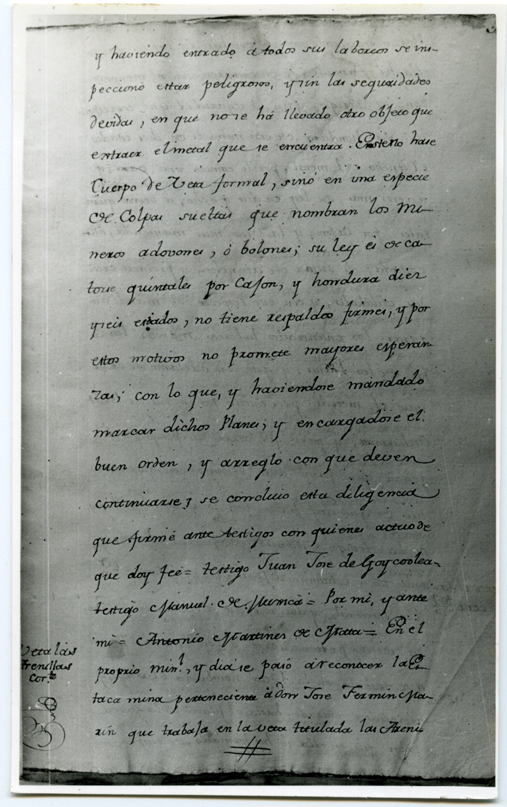 y haviendo entrado à todos sus laboreos se ins-
peccionó estar peligrosos, y sin las seguridades
devidas, en que no se há llevado otro objeto que
extraer el metal que se encuentra. Este no hase
Cuerpo de Veta formal, sinó en una especie
de Colpas sueltas que nombran los Mi-
neros adovones, ò bolones; su ley és de ca-
torse quintales por Cajon, y hondura diez
y seis estados, no tiene respaldos firmes, y por
estos motivos no promete mayores esperan-
zas; con lo que, y haviendose mandado
marcar dichos Planes, y encargadose el
buen orden, y arreglo con que deven
continuarse, se concluio esta diligencia
que firmé ante testigos con quienes actuo de
que doy feé= testigo Juan Jose de Goycoolea=
testigo Manuel de = Por mi, y ante
mi= Antonio Martines de Matta= En el
proprio min.l, y dia se pasó a reconocer la Es
taca mina perteneciente à don Jose Fermin Ma-
rin que trabaja en la veta titulada las Areni
Veta las
Arenillas
Cor.te